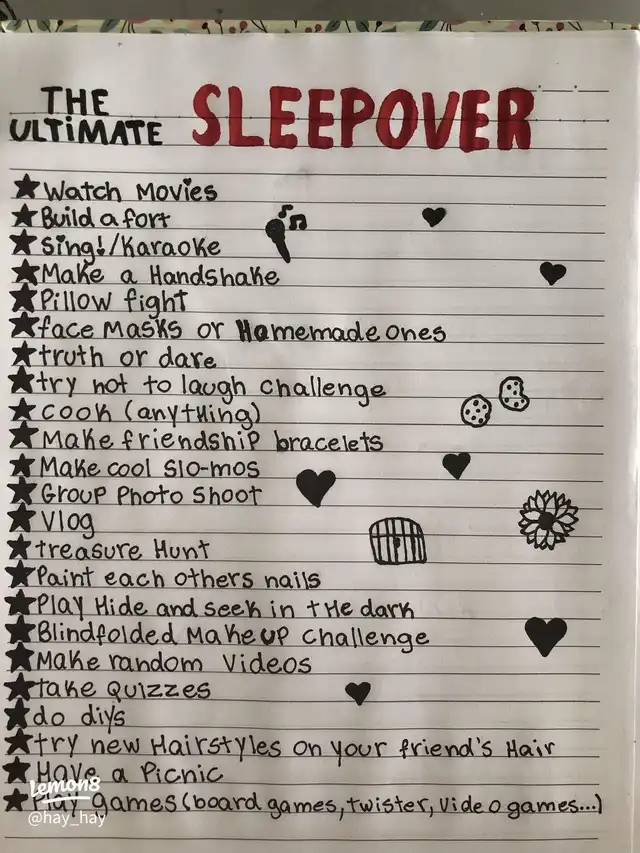 THE
ULTiMATE SLEEPOVER
★Watch Movies
★Build a fort
★Sing!/Karaoke
★Make a Handshake
★Pillow fight
★face Masks or Homemade ones
★truth or dare
★try not to laugh challenge
★cook (anytHing)
★Make friendship bracelets
★Make cool slo-mos
★Group Photo Shoot
★Vlog
★treasure Hunt
★Paint each others nails
★Play Hide and seek in tHe dark
★Blindfolded MakeuP challenge
★Make random Videos
★take Quizzes
★do diys
★try new Hairstyles on your friend's Hair
★Have a Picnic
★Play games (board games, twister, video games...)
Lemon8
@hay_hay